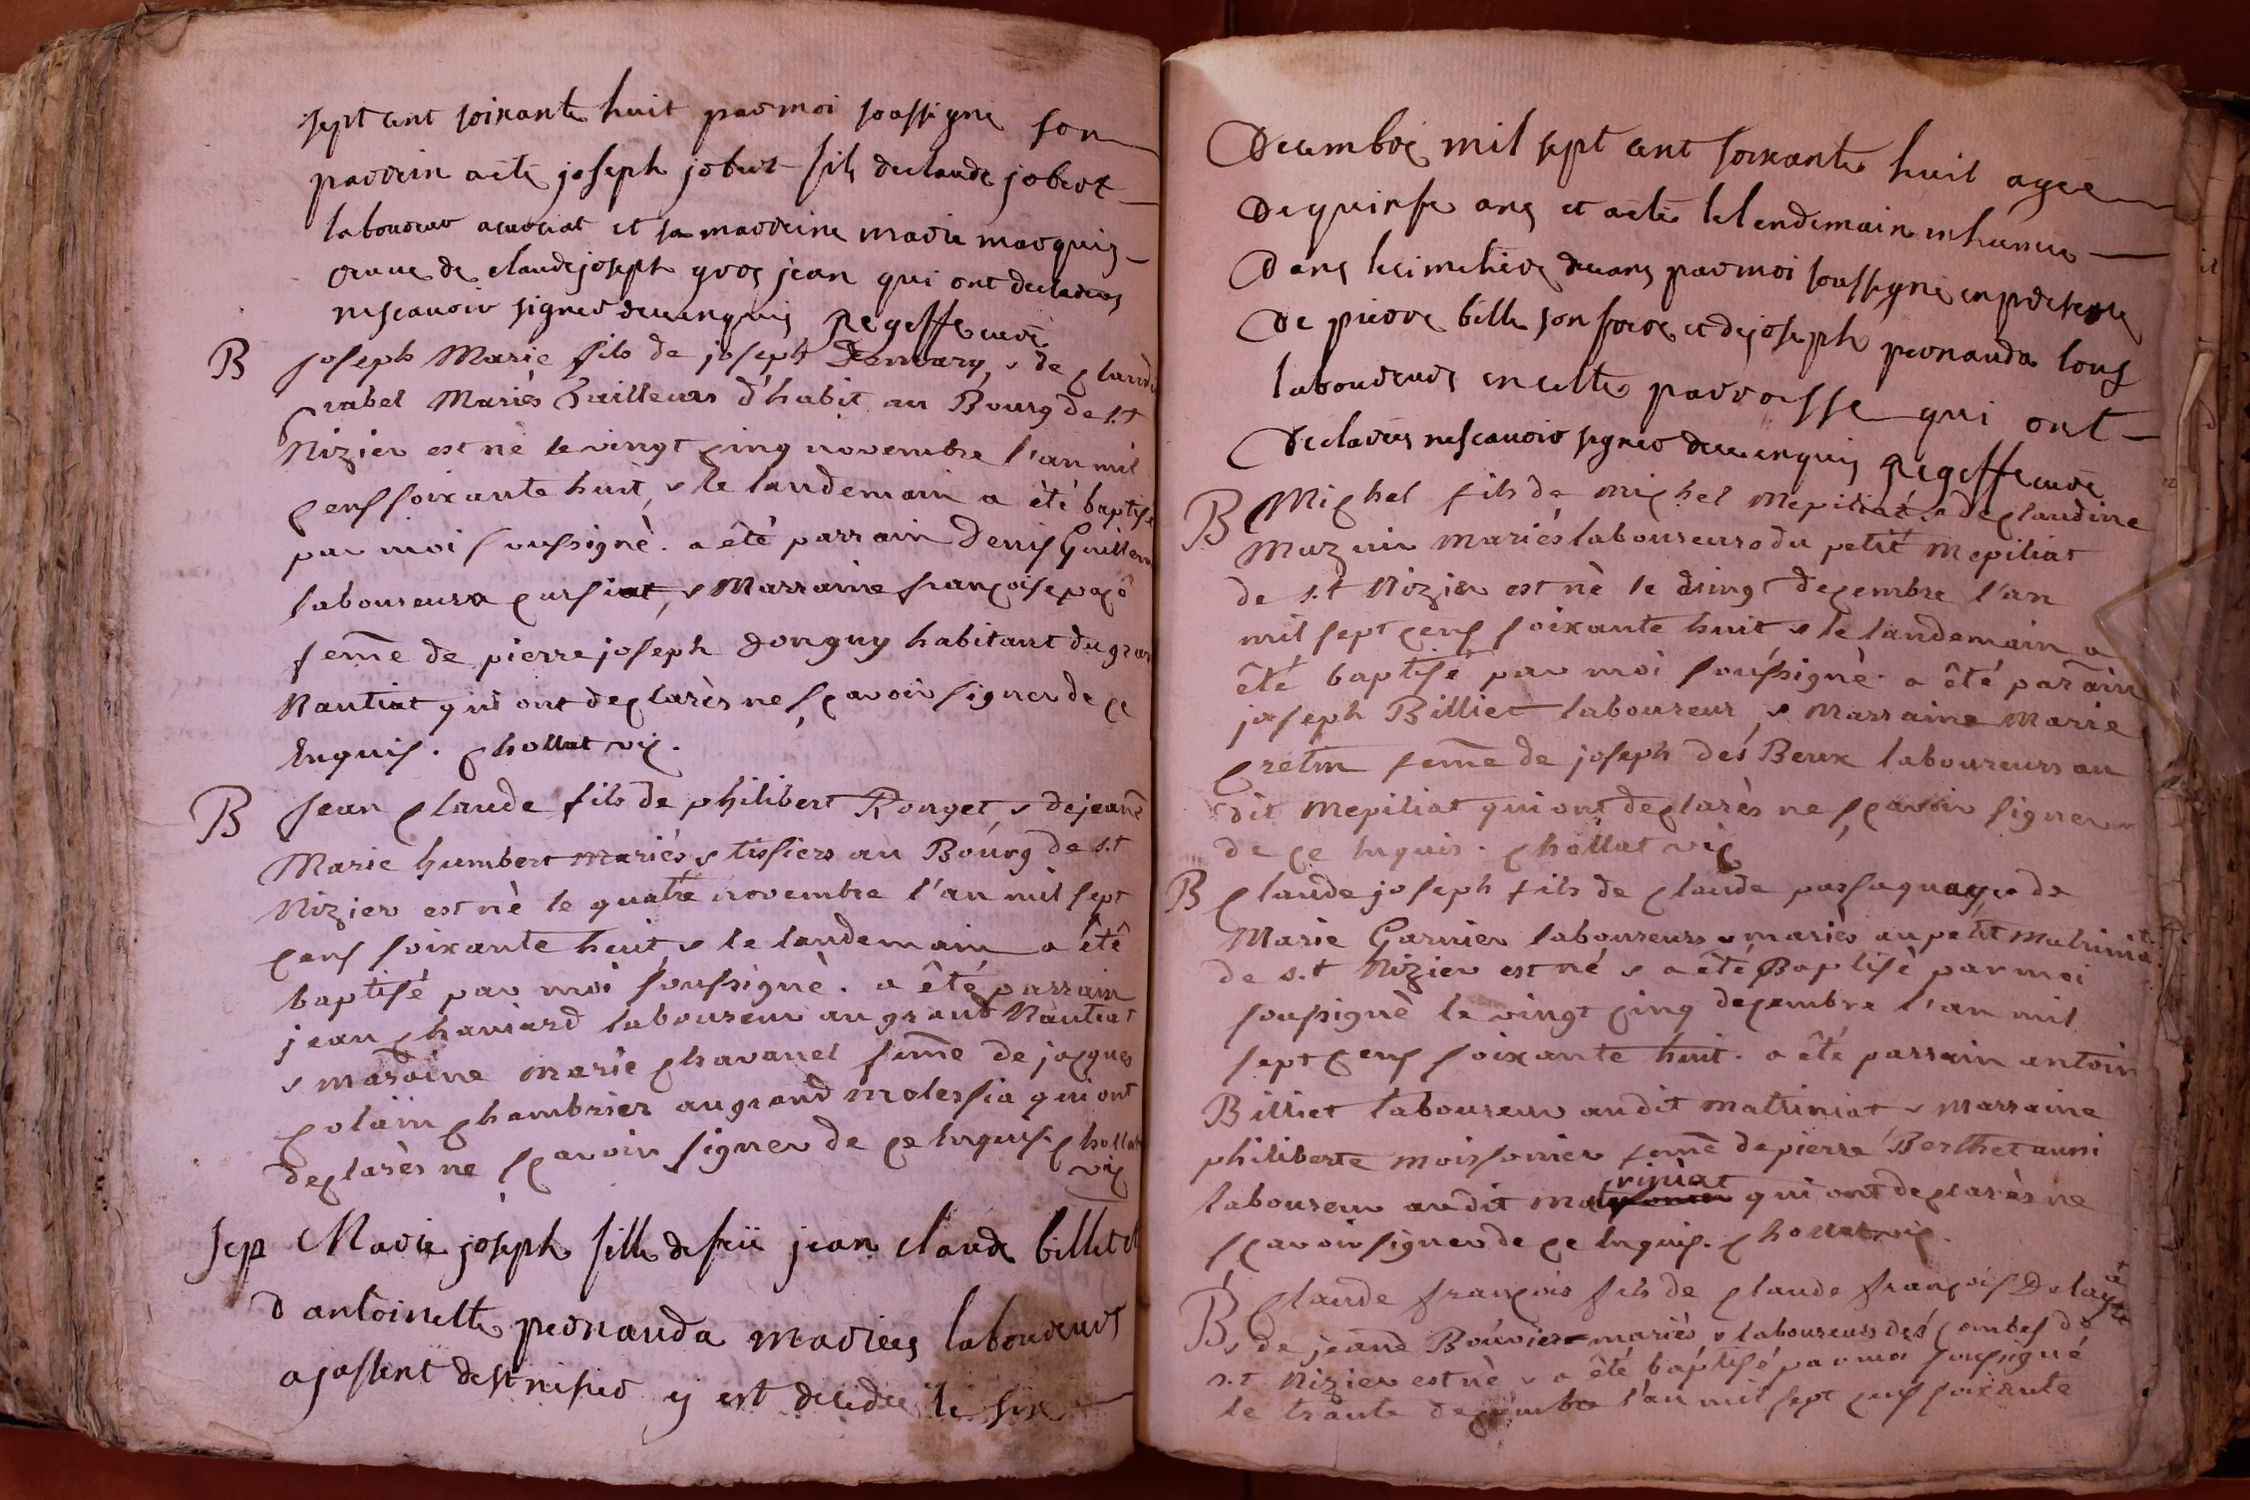 sept cent soixante huit par moi soussigné son
parrein a eté joseph jobert fils de claude jobert
laboureur a curciat et sa marreine marie marquis
veuve de claude joseph gros jean qui ont declarers
ne scavoir signer de ce enquis Regeffe curé
B joseph Marie fils de joseph Denvary, & de claud
crabel Mariès Tailleurs d'habit au Bourg de s.t
Nizier est nè le vingt cinq novembre l'an mil
cens soixante huit, & le landemain a èté baptisé
par moi soussignè. a êté parrain Denis Guillem
laboureur a cursiat, & Marraine françoise pagô
feme de pierre joseph Donguy habitant du gran
Nantiat qui ont declarès ne sçavoir signer de ce
Enquis. chollat vic.
B Jean claude fils de philibert Ronget, & de jeane
Marie humbert mariés & tissiers au Bourg de s.t
Nizier est nè le quatre novembre l'an mil sept
cens soixante huit, & le landemain a êtê
baptisé par moi soussignè. a êté parrain
jean chaniard laboureur au grand Nantiat
& maraine marie chavanel feme de jacques
colain chambrier au grand molessia qui ont
declarès ne sçavoir signer de ce enquis. chollat
vic
Sep Marie joseph fille de feü jean claude billet et
d antoinette pernauda mariees laboureurs
a jassent de st nisier y est decedee le six
Decembre mil sept cent soixante huit agee
de quinse ans et a eté le lendemain inhumee
dans le cimetiere ceans par moi soussigné en presence
de pierre bille son frere et de joseph pernauda tous
laboureurs en cette parroisse qui ont
declarers ne scavoir signer de ce enquis Regeffe curé
B Michel fils de michel Mepiliat & de claudine
Muzuir mariés laboureurs du petit Mepiliat
de s.t Nizier est nè le vingt decembre l'an
mil sept cens soixante huit & le landemain a
êté baptisé par moi soussignè. a êté parain
joseph Billiet laboureur, & marraine Marie
cretin feme de joseph des Beux laboureurs au
dit Mepiliat qui ont declarès ne sçavoir signer
de ce enquis. chollat vic
B claude joseph fils de claude passaquay, & de
Marie Garnier laboureurs & mariès au petit Matrinia.t
de s.t Nizier est né & a êté Baptisè par moi
soussignè le vingt cinq decembre l'an mil
sept cens soixante huit. a êté parrain antoin
Billiet laboureur audit matriniat & marraine
philiberte moissonier feme de pierre Berthet aussi
laboureur audit mat riniat qui ont declarès ne
sçavoir signer de ce enquis. chollat vic.
B claude françois fils de claude françois Delay
& de jeane Bouvier mariès & laboureurs des combes de
s.t Nizier est nè & a êté baptisé par moi soussigné
le trante decembre l'an mil sept cens soixante